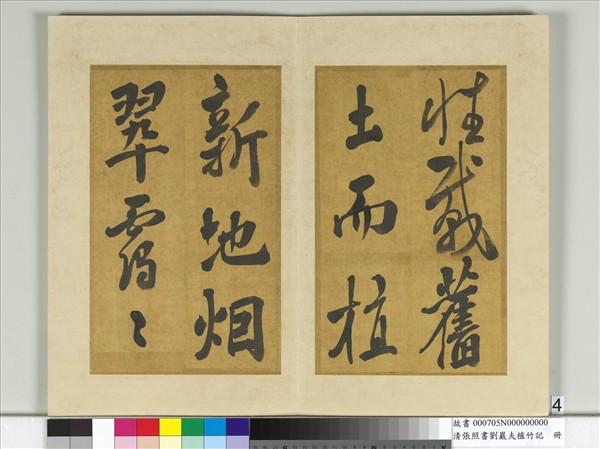 性載舊
土而植
新地烟
翠靄〻
4
故書 000705N000000000
清張照書劉巖夫植竹記 冊